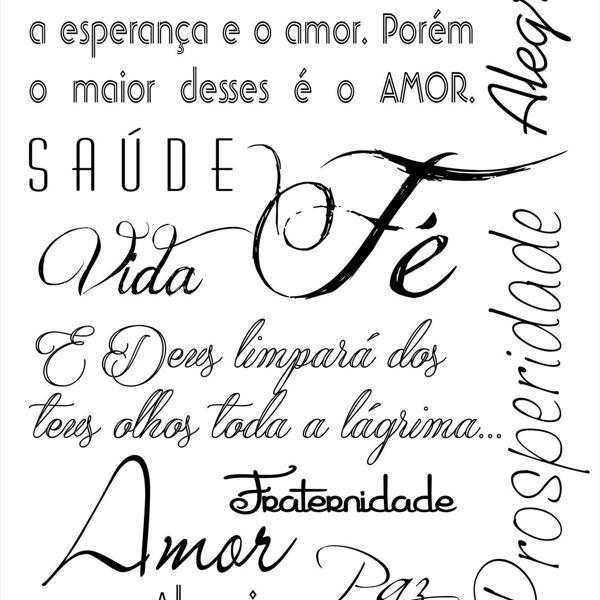 a esperança e o amor. Porém
o maior desses é o AMOR.
SAÚDE
Fé
Vida
E Deus limpará dos
teus olhos toda a lágrima...
Fraternidade
Amor
Paz
Prosperidade